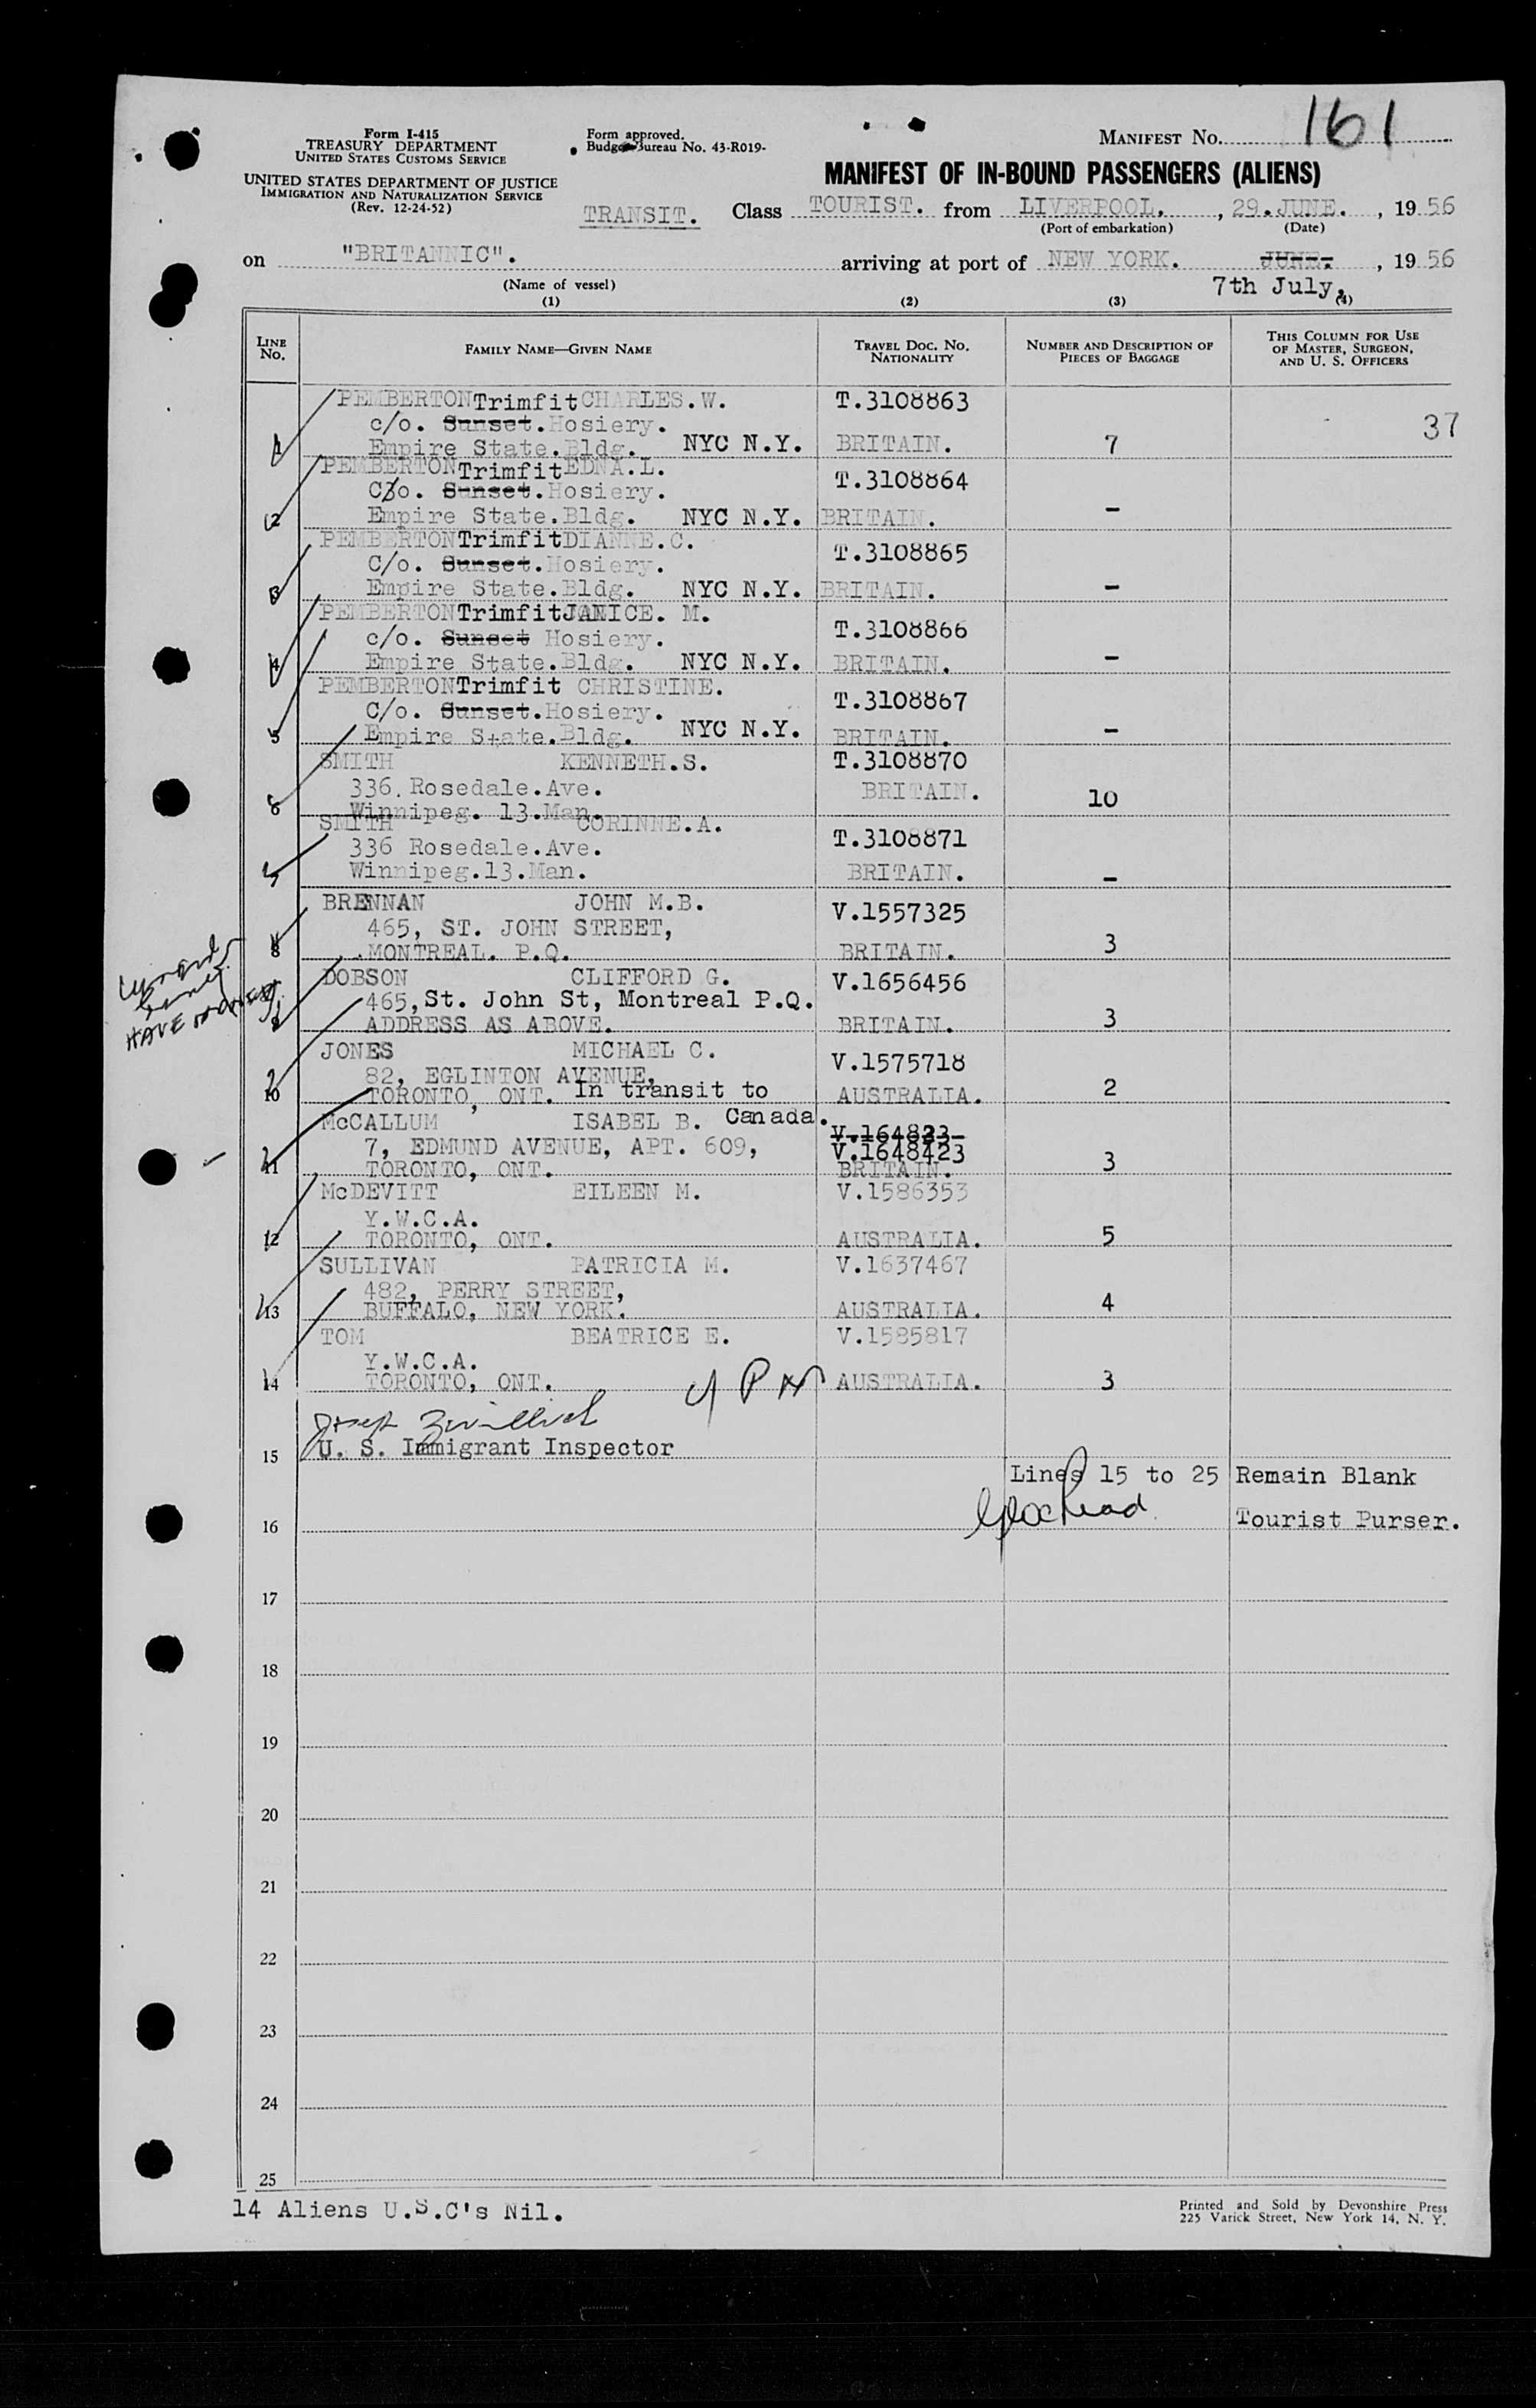 161
Form I-415
TREASURY DEPARTMENT
UNITED STATES CUSTOMS SERVICE
UNITED STATES DEPARTMENT OF JUSTICE
IMMIGRATION AND NATURALIZATION SERVICE
(Rev. 12-24-52)
Form approved.
Budget Bureau No. 43-R019-
MANIFEST NO.
MANIFEST OF IN-BOUND PASSENGERS (ALIENS)
TRANSIT. Class TOURIST. from LIVERPOOL. , 29.JUNE. , 1956
(Port of embarkation) (Date)
on "BRITANNIC". arriving at port of NEW YORK. JUNE. , 1956
(Name of vessel) 7th July,
(1) (2) (3) (4)
LINE NO. FAMILY NAME—GIVEN NAME TRAVEL DOC. NO. NATIONALITY NUMBER AND DESCRIPTION OF PIECES OF BAGGAGE THIS COLUMN FOR USE OF MASTER, SURGEON, AND U. S. OFFICERS
PEMBERTON Trimfit CHARLES.W. T.3108863
c/o. Sunset.Hosiery. 37
1 Empire State.Bldg. NYC N.Y. BRITAIN. 7
PEMBERTON Trimfit EDNA.L. T.3108864
C/o. Sunset.Hosiery.
2 Empire State.Bldg. NYC N.Y. BRITAIN. -
PEMBERTON Trimfit DIANNE.C. T.3108865
C/o. Sunset.Hosiery.
3 Empire State.Bldg. NYC N.Y. BRITAIN. -
PEMBERTON Trimfit JANICE. M. T.3108866
c/o. Sunset Hosiery.
4 Empire State.Bldg. NYC N.Y. BRITAIN. -
PEMBERTON Trimfit CHRISTINE. T.3108867
C/o. Sunset.Hosiery.
5 Empire State.Bldg. NYC N.Y. BRITAIN. -
SMITH KENNETH.S. T.3108870
336.Rosedale.Ave. BRITAIN.
6 Winnipeg. 13.Man. 10
SMITH CORINNE.A. T.3108871
336 Rosedale.Ave.
7 Winnipeg.13.Man. BRITAIN. -
BRENNAN JOHN M.B. V.1557325
465, ST. JOHN STREET,
8 MONTREAL. P.Q. BRITAIN. 3
DOBSON CLIFFORD G. V.1656456
465, St. John St, Montreal P.Q.
9 ADDRESS AS ABOVE. BRITAIN. 3
HAVE
JONES MICHAEL C. V.1575718
82, EGLINTON AVENUE,
10 TORONTO, ONT. In transit to AUSTRALIA. 2
McCALLUM ISABEL B. Canada. V.164823
7, EDMUND AVENUE, APT. 609, V.1648423
11 TORONTO, ONT. BRITAIN. 3
McDEVITT EILEEN M. V.1586353
Y.W.C.A.
12 TORONTO, ONT. AUSTRALIA. 5
SULLIVAN PATRICIA M. V.1637467
482, PERRY STREET,
13 BUFFALO, NEW YORK. AUSTRALIA. 4
TOM BEATRICE E. V.1585817
Y.W.C.A.
14 TORONTO, ONT. AUSTRALIA. 3
Joseph
15 U. S. Immigrant Inspector
Lines 15 to 25 Remain Blank
16 Tourist Purser.
17
18
19
20
21
22
23
24
25
14 Aliens U.S.C's Nil.
Printed and Sold by Devonshire Press
225 Varick Street, New York 14, N. Y.